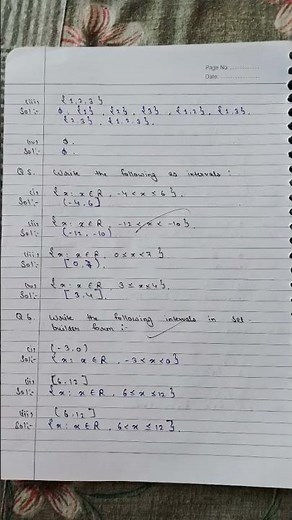 Page No
Date
(iii) {1,2,3}
Sol:- φ, {1}, {2}, {3}, {1,2}, {1,3},
{2,3}, {1,2,3}.
(iv) φ.
Sol:- φ.
Q5. Write the following as intervals:
(i) {x: x ∈ R, -4 < x ≤ 6}.
Sol:- (-4, 6]
(ii) {x: x ∈ R, -12 < x < -10}.
Sol:- (-12, -10)
(iii) {x: x ∈ R, 0 ≤ x < 7}.
Sol:- [0, 7).
(iv) {x: x ∈ R, 3 ≤ x ≤ 4}.
Sol:- [3, 4].
Q6. Write the following intervals in set-
builder form:-
(i) (-3, 0)
Sol:- {x: x ∈ R, -3 < x < 0}
(ii) [6, 12]
Sol:- {x: x ∈ R, 6 ≤ x ≤ 12}
(iii) (6, 12]
Sol:- {x: x ∈ R, 6 < x ≤ 12}.